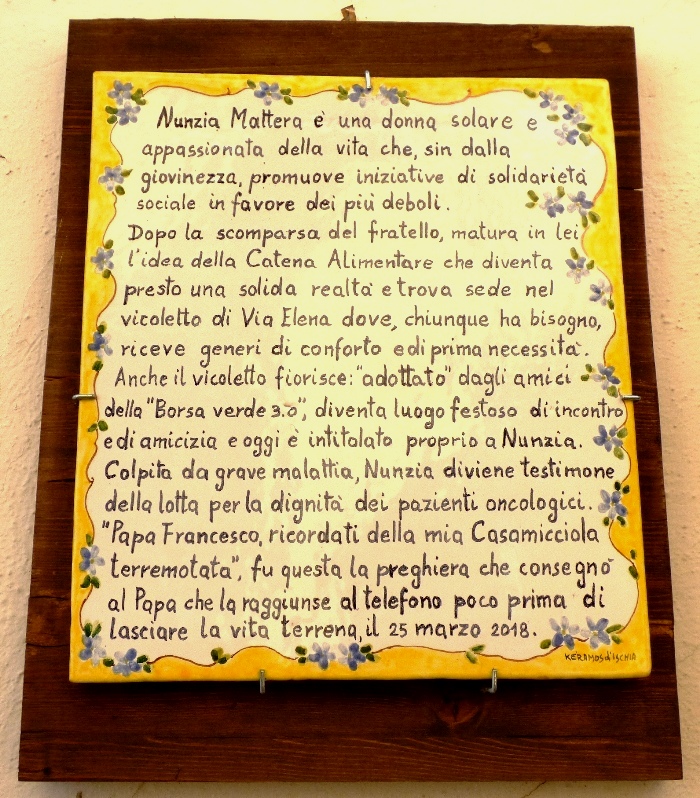 Nunzia Mattera è una donna solare e
appassionata della vita che, sin dalla
giovinezza, promuove iniziative di solidarietà
sociale in favore dei più deboli.
Dopo la scomparsa del fratello, matura in lei
l'idea della Catena Alimentare che diventa
presto una solida realtà e trova sede nel
vicoletto di Via Elena dove, chiunque ha bisogno,
riceve generi di conforto e di prima necessità.
Anche il vicoletto fiorisce: "adottato" dagli amici
della "Borsa verde 3.0", diventa luogo festoso di incontro
e di amicizia e oggi è intitolato proprio a Nunzia.
Colpita da grave malattia, Nunzia diviene testimone
della lotta per la dignità dei pazienti oncologici.
"Papa Francesco, ricordati della mia Casamicciola
terremotata", fu questa la preghiera che consegnò
al Papa che la raggiunse al telefono poco prima di
lasciare la vita terrena, il 25 marzo 2018.
KERAMOS d'ISCHIA